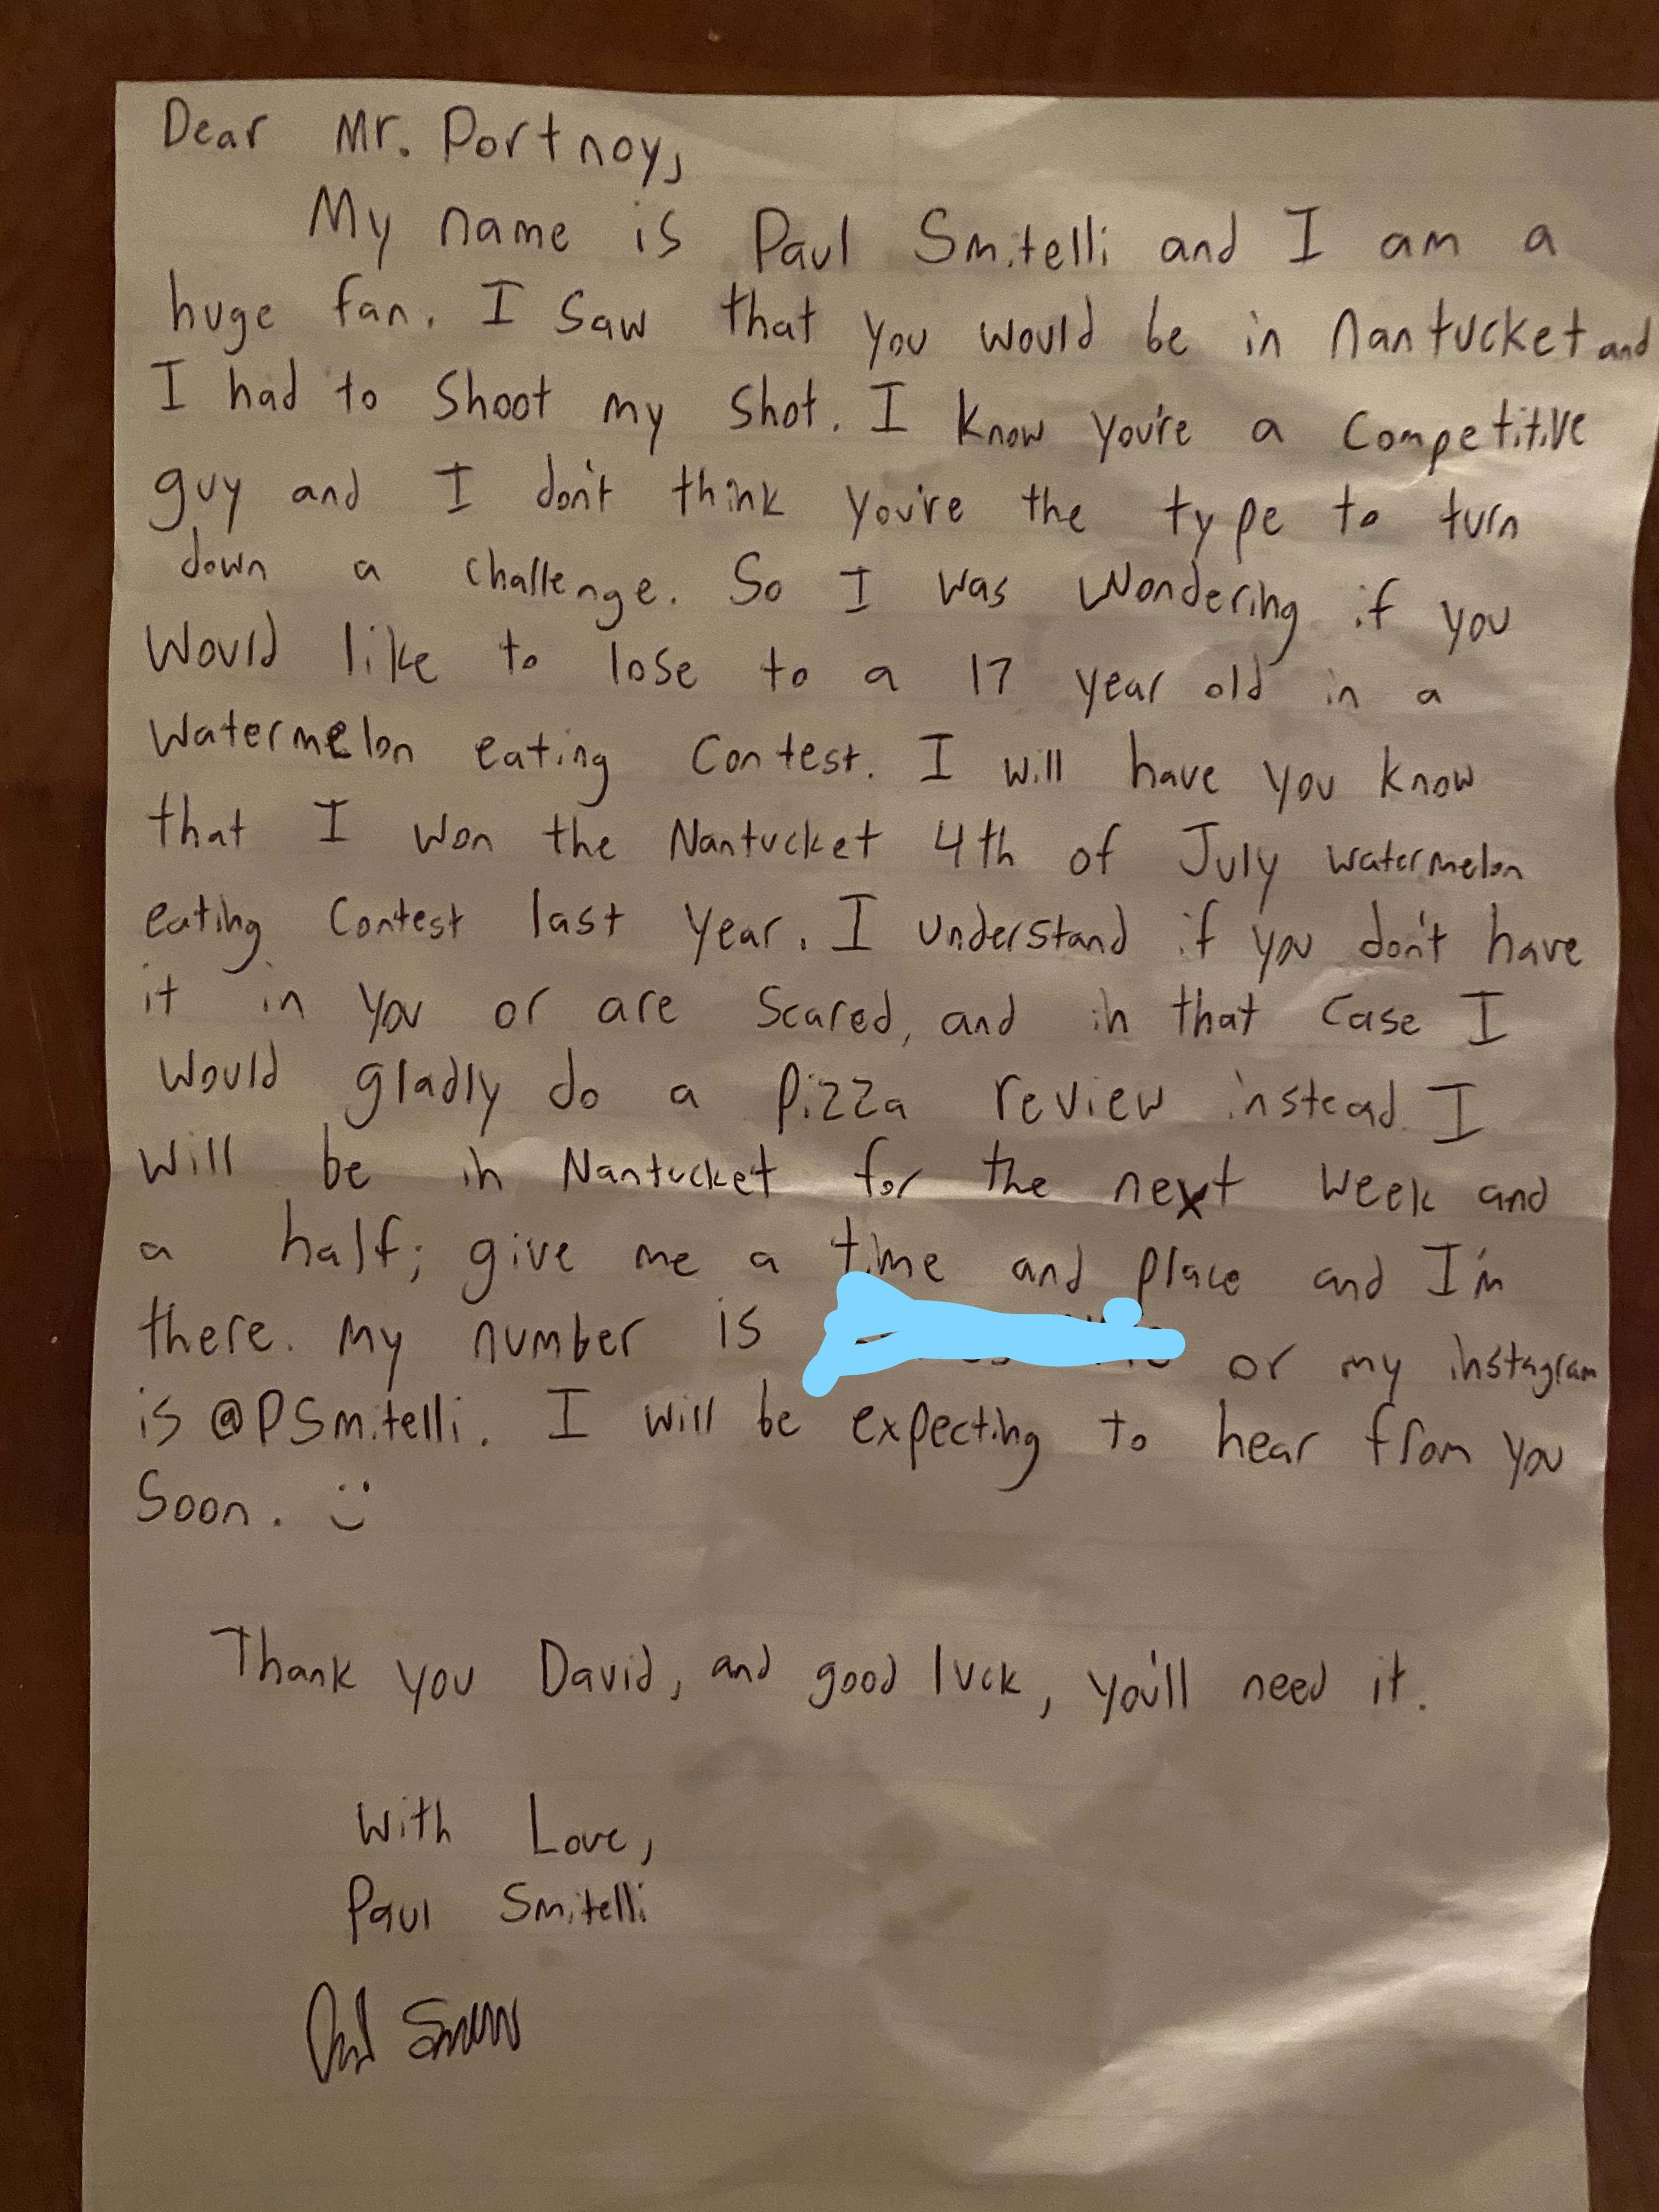 Dear Mr. Portnoy,
My name is Paul Smitelli and I am a
huge fan. I saw that you would be in Nantucket and
I had to shoot my shot. I know you're a competitive
guy and I don't think you're the type to turn
down a challenge. So I was wondering if you
would like to lose to a 17 year old in a
watermelon eating contest. I will have you know
that I won the Nantucket 4th of July watermelon
eating contest last year. I understand if you don't have
it in you or are scared, and in that case I
would gladly do a pizza review instead. I
will be in Nantucket for the next week and
a half; give me a time and place and I'm
there. My number is or my instagram
is @PSmitelli. I will be expecting to hear from you
soon. :)
Thank you David, and good luck, you'll need it.
With Love,
Paul Smitelli